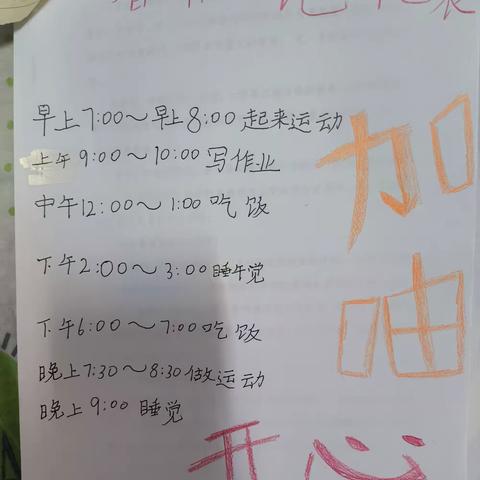 早上7:00～早上8:00起来运动
上午9:00～10:00写作业
中午12:00～1:00吃饭
下午2:00～3:00睡午觉
下午6:00～7:00吃饭
晚上7:30～8:30做运动
晚上9:00睡觉
加油
开心